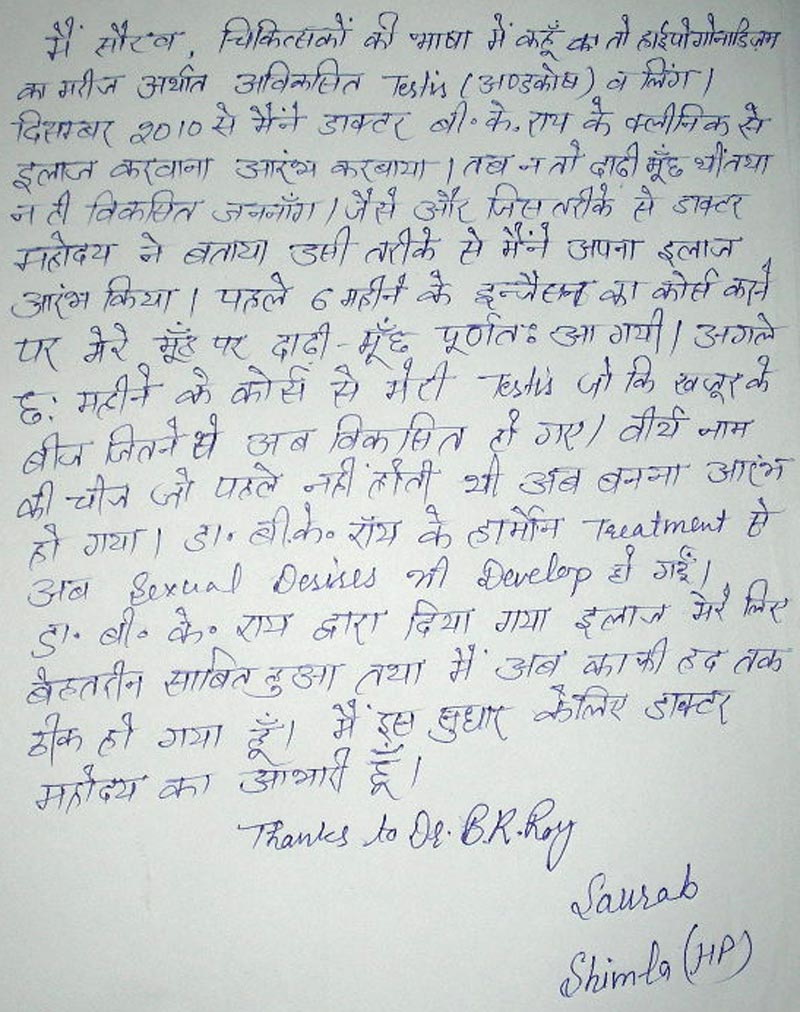 मैं सौरव, चिकित्सकों की भाषा में कहूँ का तो हाईपोगोनाडिज़म
का मरीज अर्थात अविकसित Testis (अण्डकोष) व लिंग।
दिसम्बर 2010 से मैंने डाक्टर बी॰के. राय के क्लीनिक से
इलाज करवाना आरंभ करबाया। तब न तो दाढ़ी मूँछ थीं तथा
न ही विकसित जननाँग। जैसे और जिस तरीके से डाक्टर
महोदय ने बताया उसी तरीके से मैंने अपना इलाज
आरंभ किया। पहले 6 महीने के इन्जैक्सन का कोर्स करने
पर मेरे मूँह पर दाढ़ी-मूँछ पूर्णतः आ गयी। अगले
छः महीने के कोर्स से मेरी Testis जो कि खजूर के
बीज जितने थे अब विकसित हो गए। वीर्य नाम
की चीज जो पहले नहीं होती थी अब बनना आरंभ
हो गया। डा॰ बी.के॰ रॉय के हार्मोन Treatment से
अब Sexual Desires भी Develop हो गईं।
डा॰ बी॰ के॰ राय द्वारा दिया गया इलाज मेरे लिए
बेहतरीन साबित हुआ तथा मैं अब काफी हद तक
ठीक हो गया हूँ। मैं इस सुधार के लिए डाक्टर
महोदय का आभारी हूँ।
Thanks to Dr. B.R. Roy
Saurab
Shimla (HP)